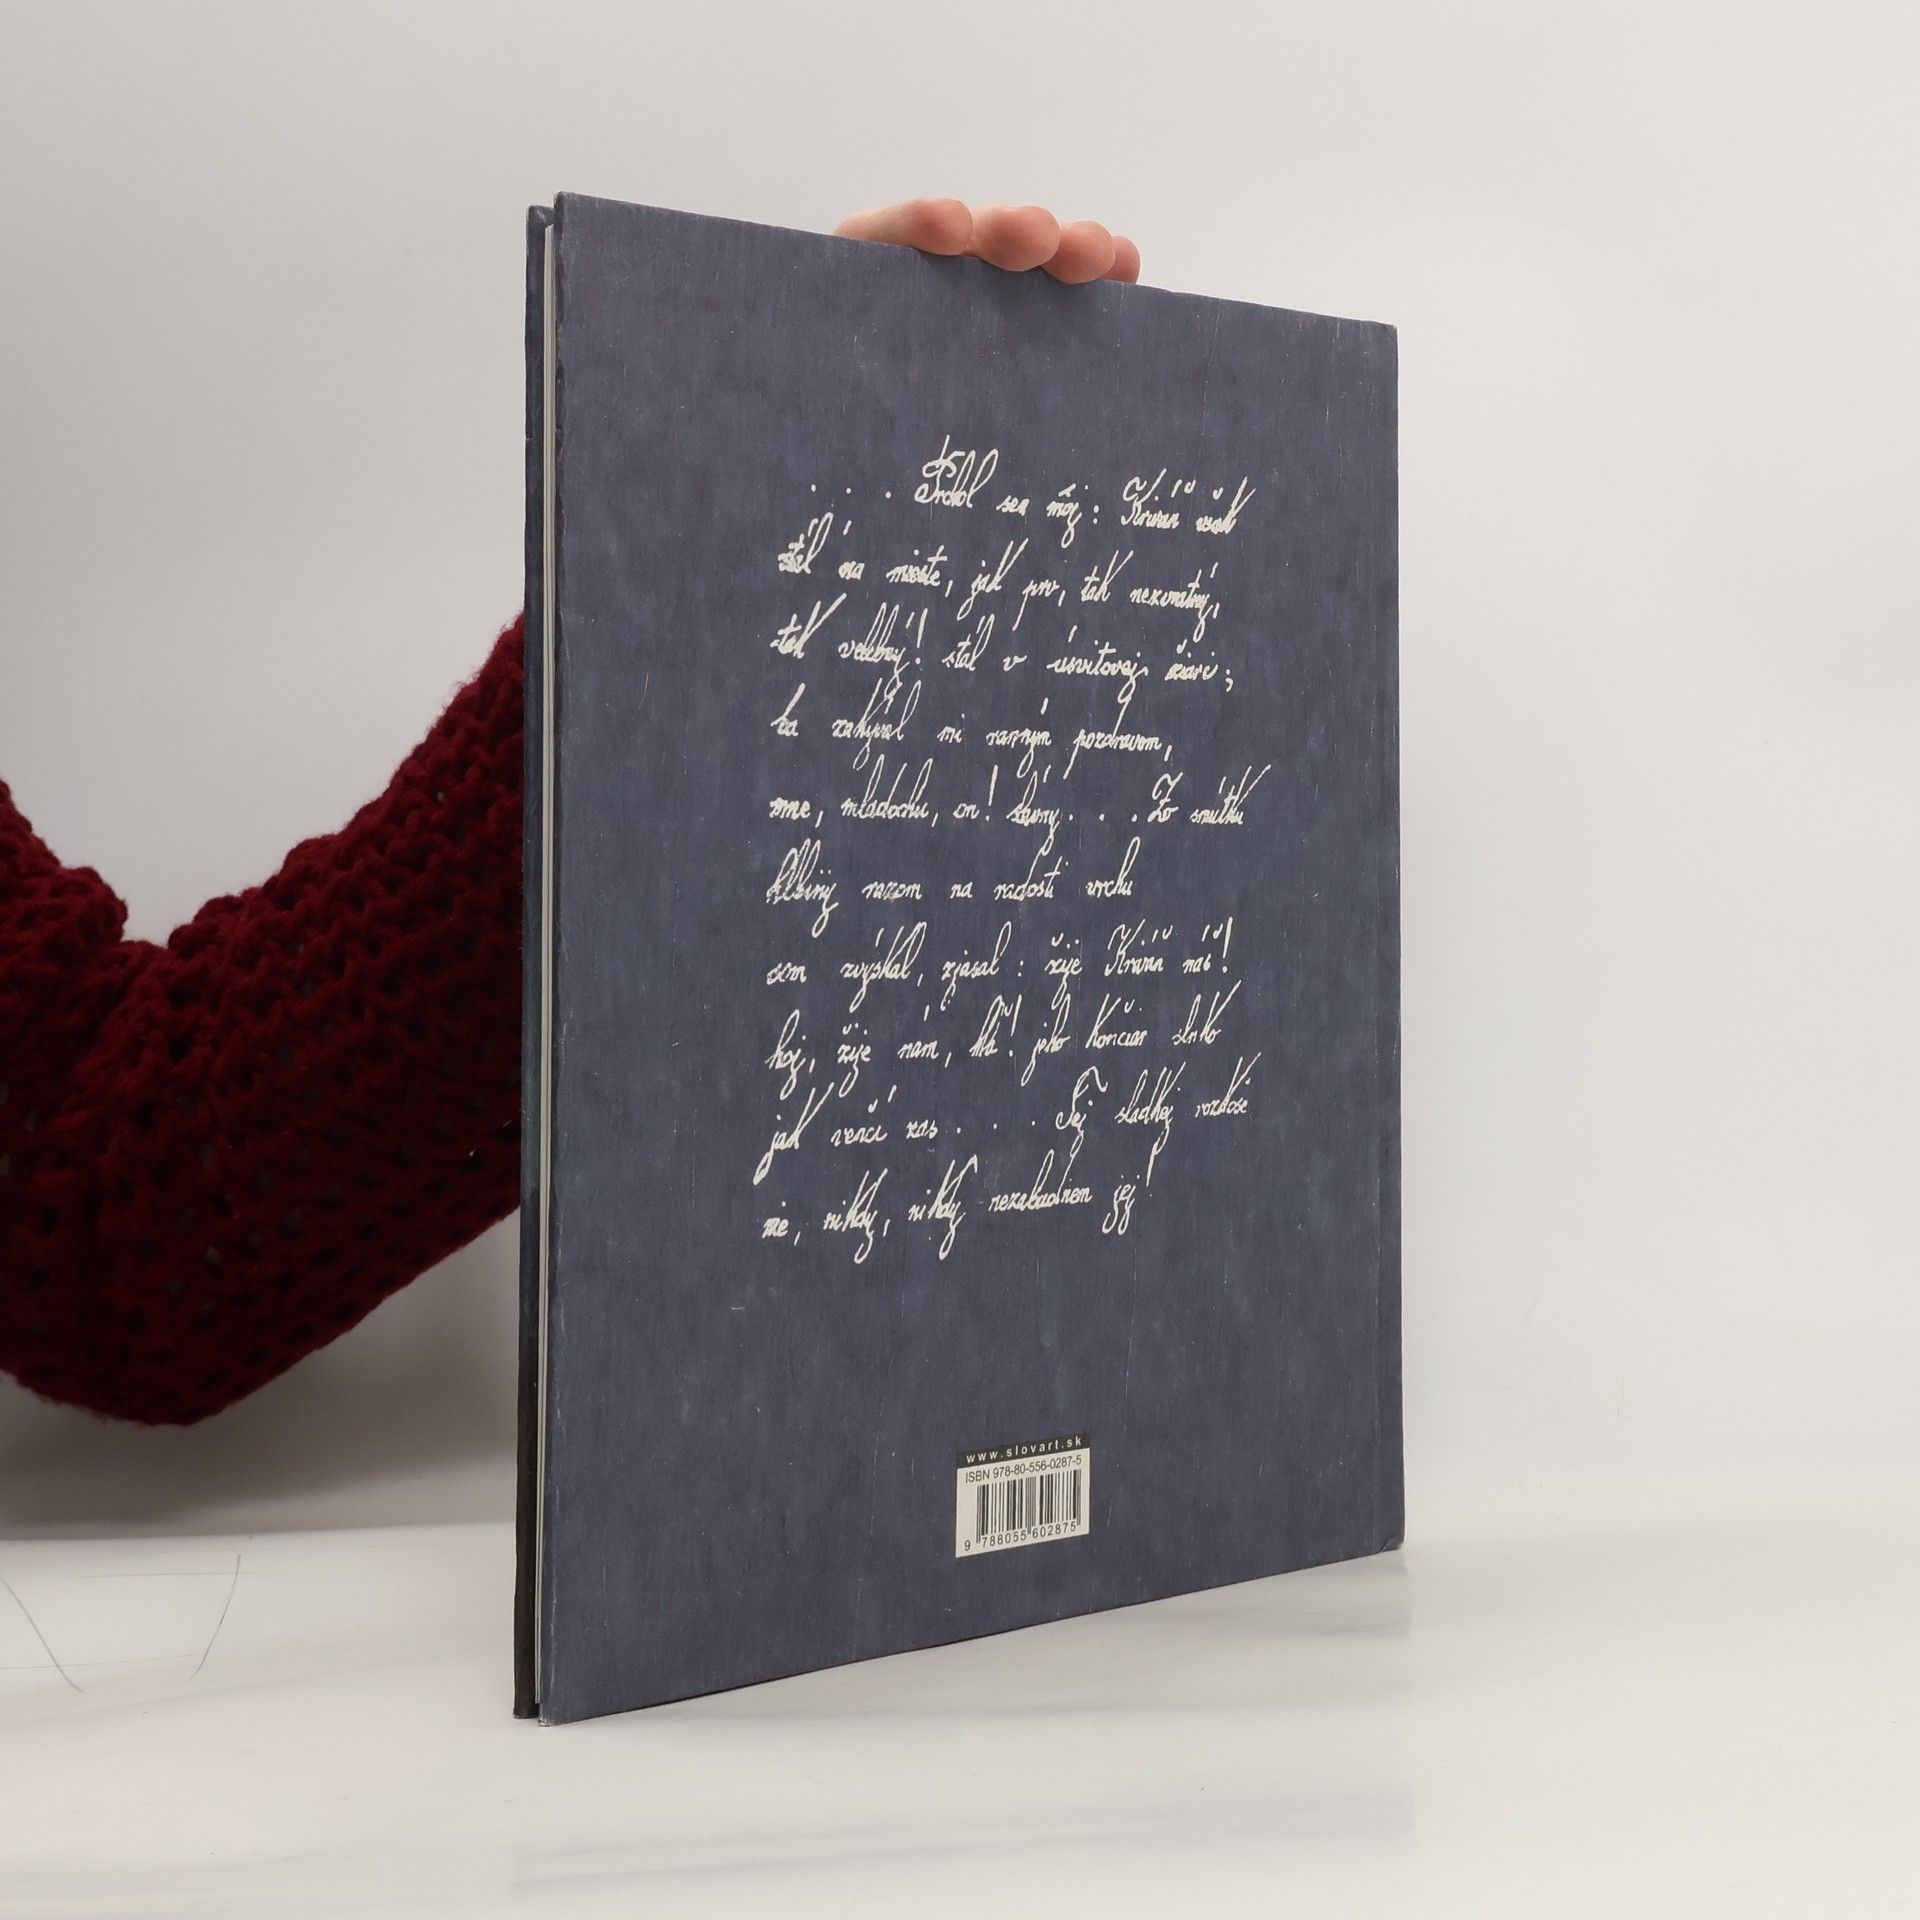 . . . Prchol sen môj: Kriváň však
stál na mieste, jak prv, tak nezvratný,
tak velebný! stál v úsvitovej žiari;
ba zakýval mi ranným pozdravom,
mne, mládochu, on! slávny . . . Zo smútku
hlbiny razom na radosti vrchu
som zvýskal, zjasal: žije Kriváň náš!
hoj, žije nám, hľa! jeho končiar slnko
jak venčí zas . . . Tej sladkej rozkoše
nie, nikdy, nikdy nezabudnem jej!
www.slovart.sk
ISBN 978-80-556-0287-5
9 788055 602875